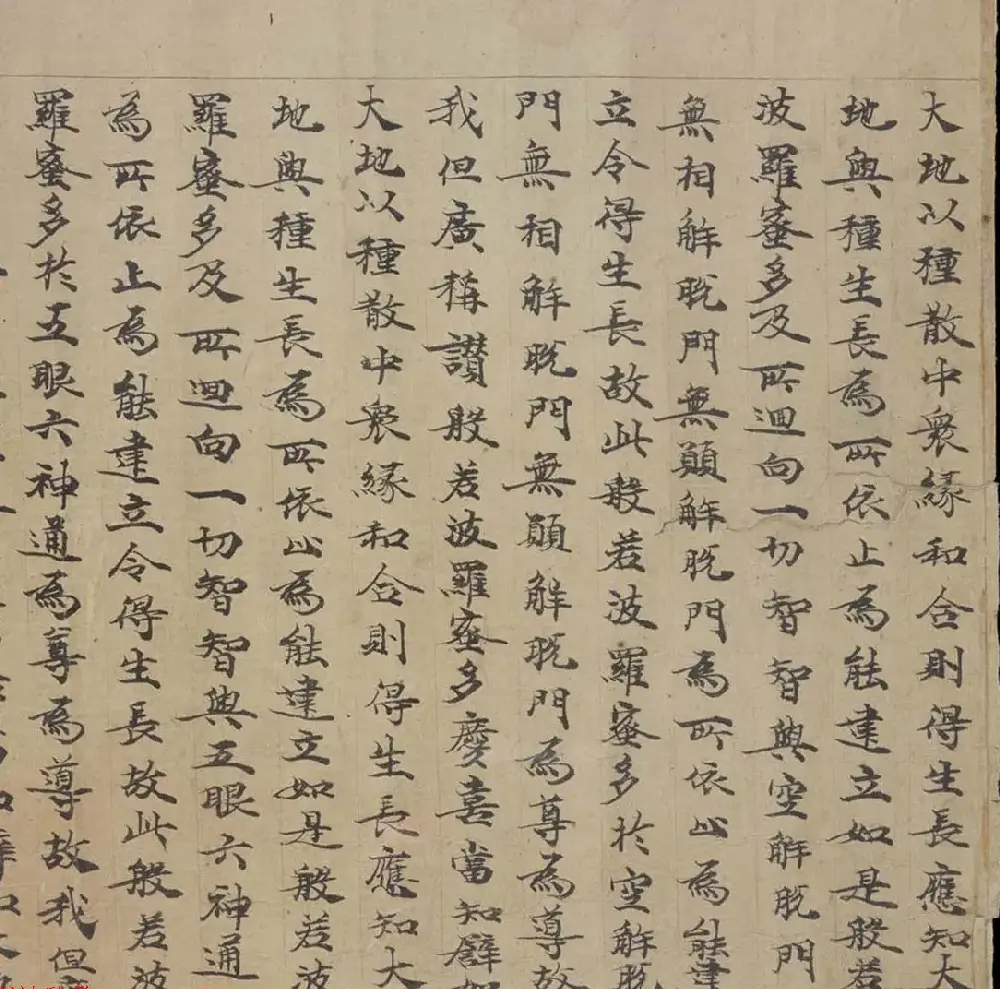 大地以種散中衆緣和合則得生長應知大
地與種生長為所依止為能建立如是般若
波羅蜜多及所迴向一切智智與空解脫門
無相解脫門無願解脫門為所依止為能建
立令得生長故此般若波羅蜜多於空解脫
門無相解脫門無願解脫門為尊為導故
我但廣稱讚般若波羅蜜多慶喜當知譬如
大地以種散中衆緣和合則得生長應知大
地與種生長為所依止為能建立如是般若波
羅蜜多及所迴向一切智智與五眼六神通
為所依止為能建立令得生長故此般若波
羅蜜多於五眼六神通為尊為導故我但廣